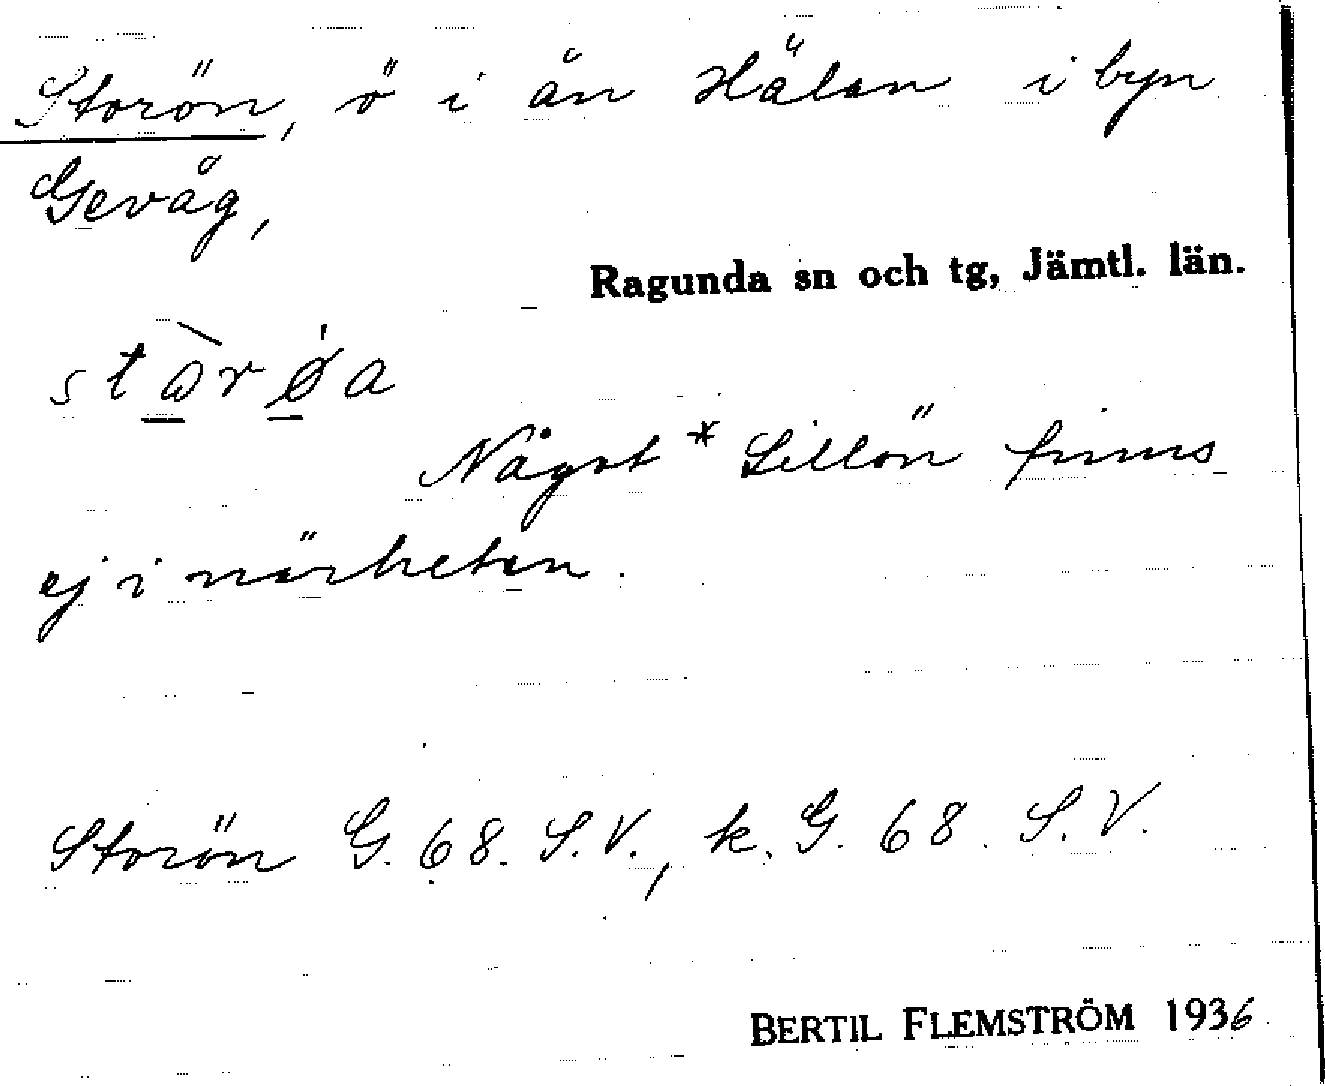 Storön, ö i ån Hälan i byn
Gevåg,
Ragunda sn och tg, Jämtl. län.
Något * Lillön finns
ej i närheten.
Storön G. 68. S.V., k. G. 68. S.V.
BERTIL FLEMSTRÖM 1936